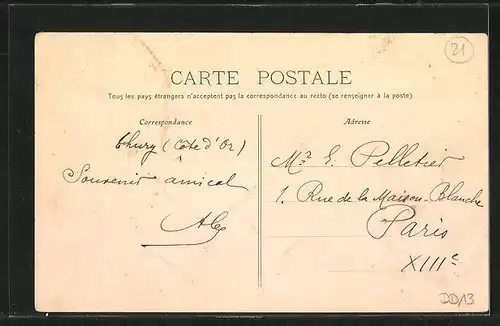 21
CARTE POSTALE
Tous les pays étrangers n'acceptent pas la correspondance au recto (se renseigner à la poste)
Correspondance
Adresse
Thury (Côte d'Or)
Souvenir amical
Alex
Mr E. Pelletier
1, Rue de la Maison-Blanche
Paris
XIIIe
DD/13